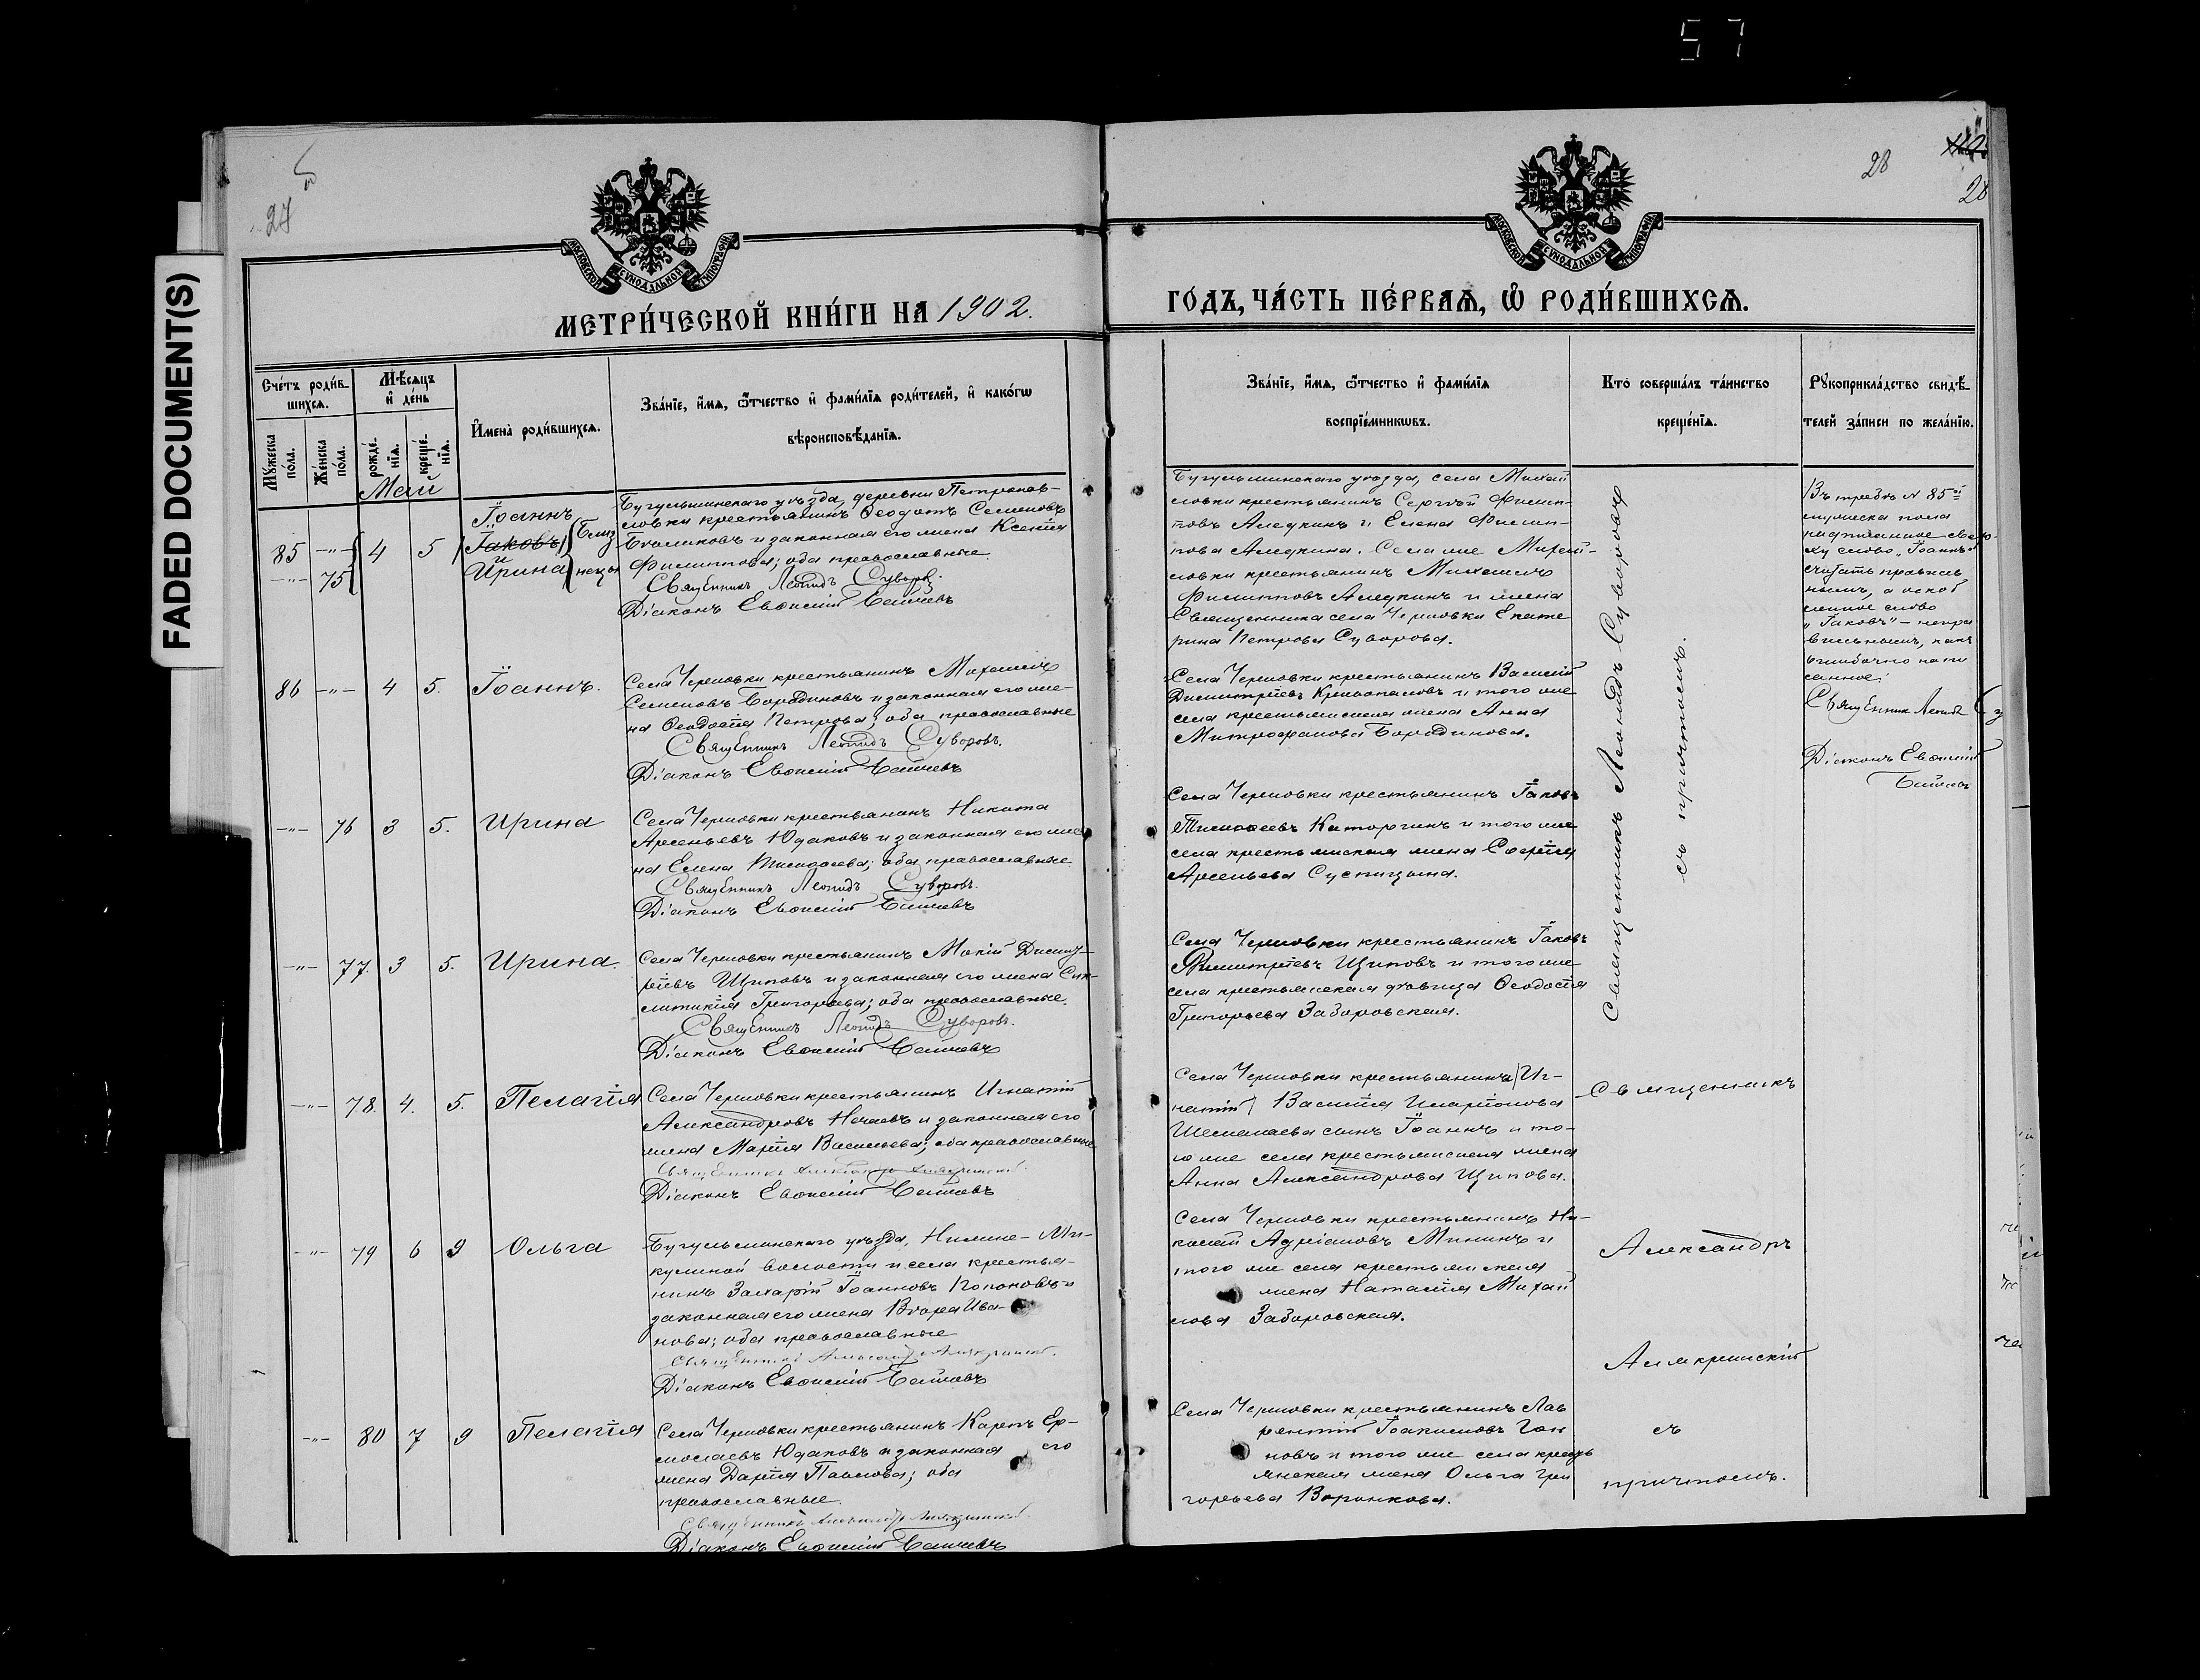 57
FADED DOCUMENT(S)
27
28
28
МОСКОВСКОЙ СѴНОДАЛЬНОЙ ТИПОГРАФІИ
МОСКОВСКОЙ СѴНОДАЛЬНОЙ ТИПОГРАФІИ
МЕТРИ́ЧЕСКОЙ КНИ́ГИ НА 1902.
ГО́ДЪ, ЧА́СТЬ ПЕ́РВАѦ, Ѡ҆ РОДИ́ВШИХСѦ.
Сче́тъ роди́в-
шихсѧ.
Мꙋ́жеска
по́ла.
Же́нска
по́ла.
Мѣ́сѧцъ
и҆ де́нь
рожде́-
нїѧ.
креще́-
нїѧ.
И҆мена̀ роди́вшихсѧ.
Зва́нїе, и҆́мѧ, ѻ҆́тчество и҆ фами́лїѧ роди́телей, и҆ како́гѡ
вѣроисповѣ́данїѧ.
Зва́нїе, и҆́мѧ, ѻ҆́тчество и҆ фами́лїѧ
воспрїе́мникѡвъ.
Кто̀ соверша́лъ та́инство
креще́нїѧ.
Рꙋкоприкла́дство свидѣ́-
телей за́писи по жела́нїю.
Май
85 -"- 4 5
-"- 75
Іоаннъ
Іаковъ
Ирина
Близ
нецы
Бугульминскаго уѣзда, деревни Петропав-
ловки крестьянинъ Ѳеодотъ Семеновъ
и законная его жена Ксенія
Филиппова; оба православные
Священникъ Леонидъ Суворовъ.
Діаконъ Евѳимій
Бугульминскаго уѣзда, села Михай
ловки крестьянинъ Сергѣй Филип-
повъ Аледкинъ и Елена Филип-
пова Аледкина. Села же Михай-
ловки крестьянинъ Михаилъ
Филипповъ Аледкинъ и жена
Священника села Чершовки Екате
рина Петрова Суворова.
Священникъ Леонидъ Суворовъ
съ причтомъ.
Въ требѣ № 85й
мужеска пола
надписанное сверх-
ху слово „Іоаннъ"
считать правиль
нымъ, а оскоб
ленное слово
„Іаковъ" – непра
вильнымъ, какъ
ошибочно напи
санное.
Священникъ Леонидъ
Діаконъ Евѳимій
86 -"- 4 5. Іоаннъ.
Села Чершовки крестьянинъ Михаилъ
Семеновъ Бородиновъ и законная его же-
на Ѳеодосія Петрова; оба православные
Священникъ Леонидъ Суворовъ.
Діаконъ Евѳимій
Села Чершовки крестьянинъ Василій
Димитріевъ и того же
села крестьянская жена Анна
Митрофанова Бородинова.
-"- 76 3 5. Ирина
Села Чершовки крестьянинъ Никита
Арсеньевъ Юдаковъ и законная его же
на Елена Тимоѳеева; оба православные
Священникъ Леонидъ Суворовъ.
Діаконъ Евѳимій
Села Чершовки крестьянинъ Іаковъ
Тимоѳеевъ Каторгинъ и того же
села крестьянская жена Софія
Арсеньева Суспицына.
-"- 77. 3 5. Ирина.
Села Чершовки крестьянинъ Мокій Димит-
ріевъ Щиповъ и законная его жена Син-
клитикія Григорьева; оба православные.
Священникъ Леонидъ Суворовъ.
Діаконъ Евѳимій
Села Чершовки крестьянинъ Іаковъ
Димитріевъ Щиповъ и того же
села крестьянская дѣвица Ѳеодосія
Григорьева Заборовская.
-"- 78. 4. 5. Пелагія
Села Чершовки крестьянинъ Игнатій
Александровъ Нечаевъ и законная его
жена Марія Васильева; оба православные
Священникъ Александръ
Діаконъ Евѳимій
Села Чершовки крестьянина Иг-
натій Василія Иларіонова
Шемалаева сынъ Іоаннъ и то-
го же села крестьянская жена
Анна Александрова Щипова.
Священникъ
-"- 79 6 9 Ольга
Бугульминскаго уѣзда, Нижне-
волости и села крестья-
нинъ Захарій Іоанновъ и
законная его жена Вѣра Ива-
нова; оба православные
Священникъ
Діаконъ Евѳимій
Села Чершовки крестьянинъ Ни-
колай Адріановъ Мининъ и
того же села крестьянская
жена Наталія Михай
лова Заборовская.
Александръ
Алякринскій
-"- 80 7 9 Пелагія
Села Чершовки крестьянинъ Карпъ Ер-
молаевъ Юдаковъ и законная его
жена Дарія Павлова; оба
православные.
Священникъ Александръ
Діаконъ Евѳимій
Села Чершовки крестьянинъ Лав
рентій Іоакимовъ Ган
новъ и того же села кресть
янская жена Ольга Гри
горьева Воронкова.
съ
причтомъ.